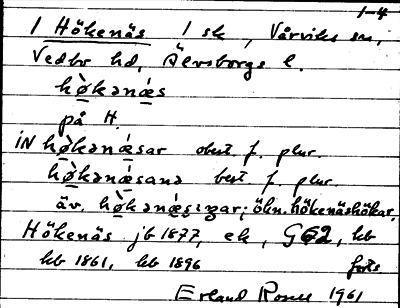 1-4
1 Hökenäs 1 sk, Vårviks sn,
Vedbo hd, Älvsborgs l.
hò̱kənǽ̱s
på H.
iN hò̱kənǽ̱sar obest f. plur.
hò̱kənǽ̱sana best f. plur.
äv. hò̱kənǽ̱sıŋar; ökn. hökenäshökar.
Hökenäs jb 1877, ek, G62, kb
kb 1861, kb 1896 forts
Erland Rosell 1961